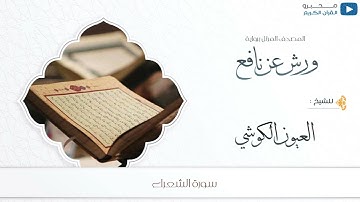 محبرو
القرآن الكريم
المصحف المرتل برواية
ورش عن نافع
للشيخ :
العيون الكوشي
سورة الشعراء